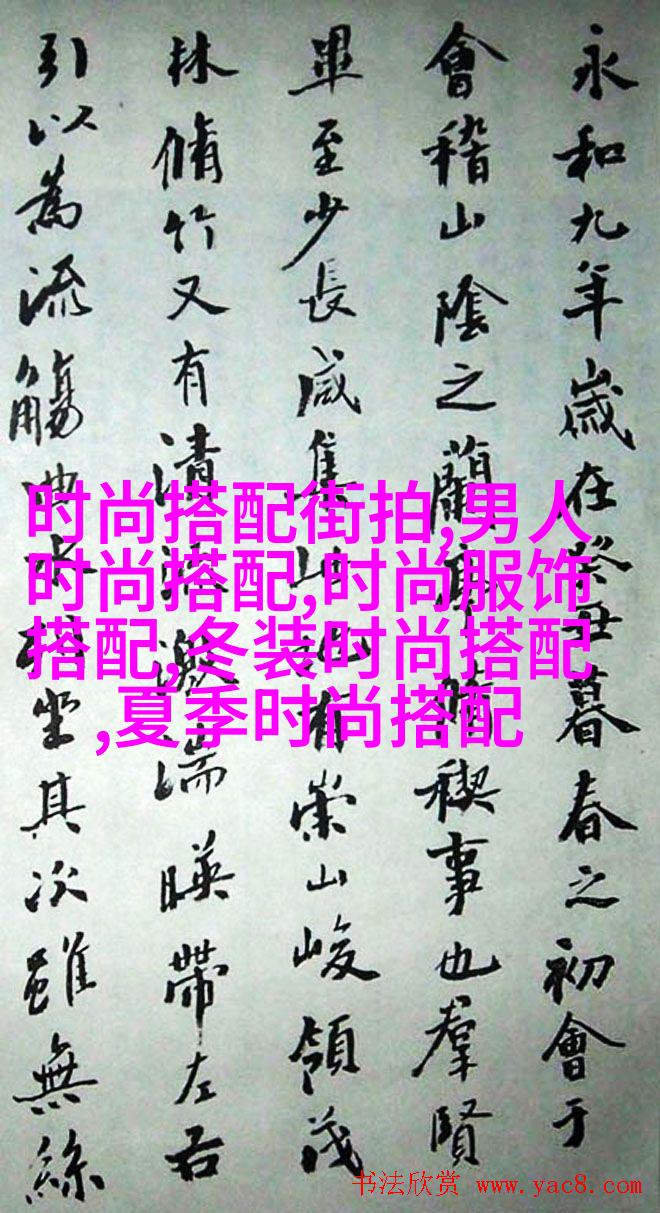 永和九年歲在癸丑暮春之初會于
會稽山陰之蘭亭脩禊事也羣賢
畢至少長咸集此地有崇山峻領茂
林脩竹又有清流激湍暎帶左右
引以為流觴曲水列坐其次雖無絲
时尚搭配街拍,男人
时尚搭配,时尚服饰
搭配,冬装时尚搭配
,夏季时尚搭配
书法欣赏 www.yac8.com